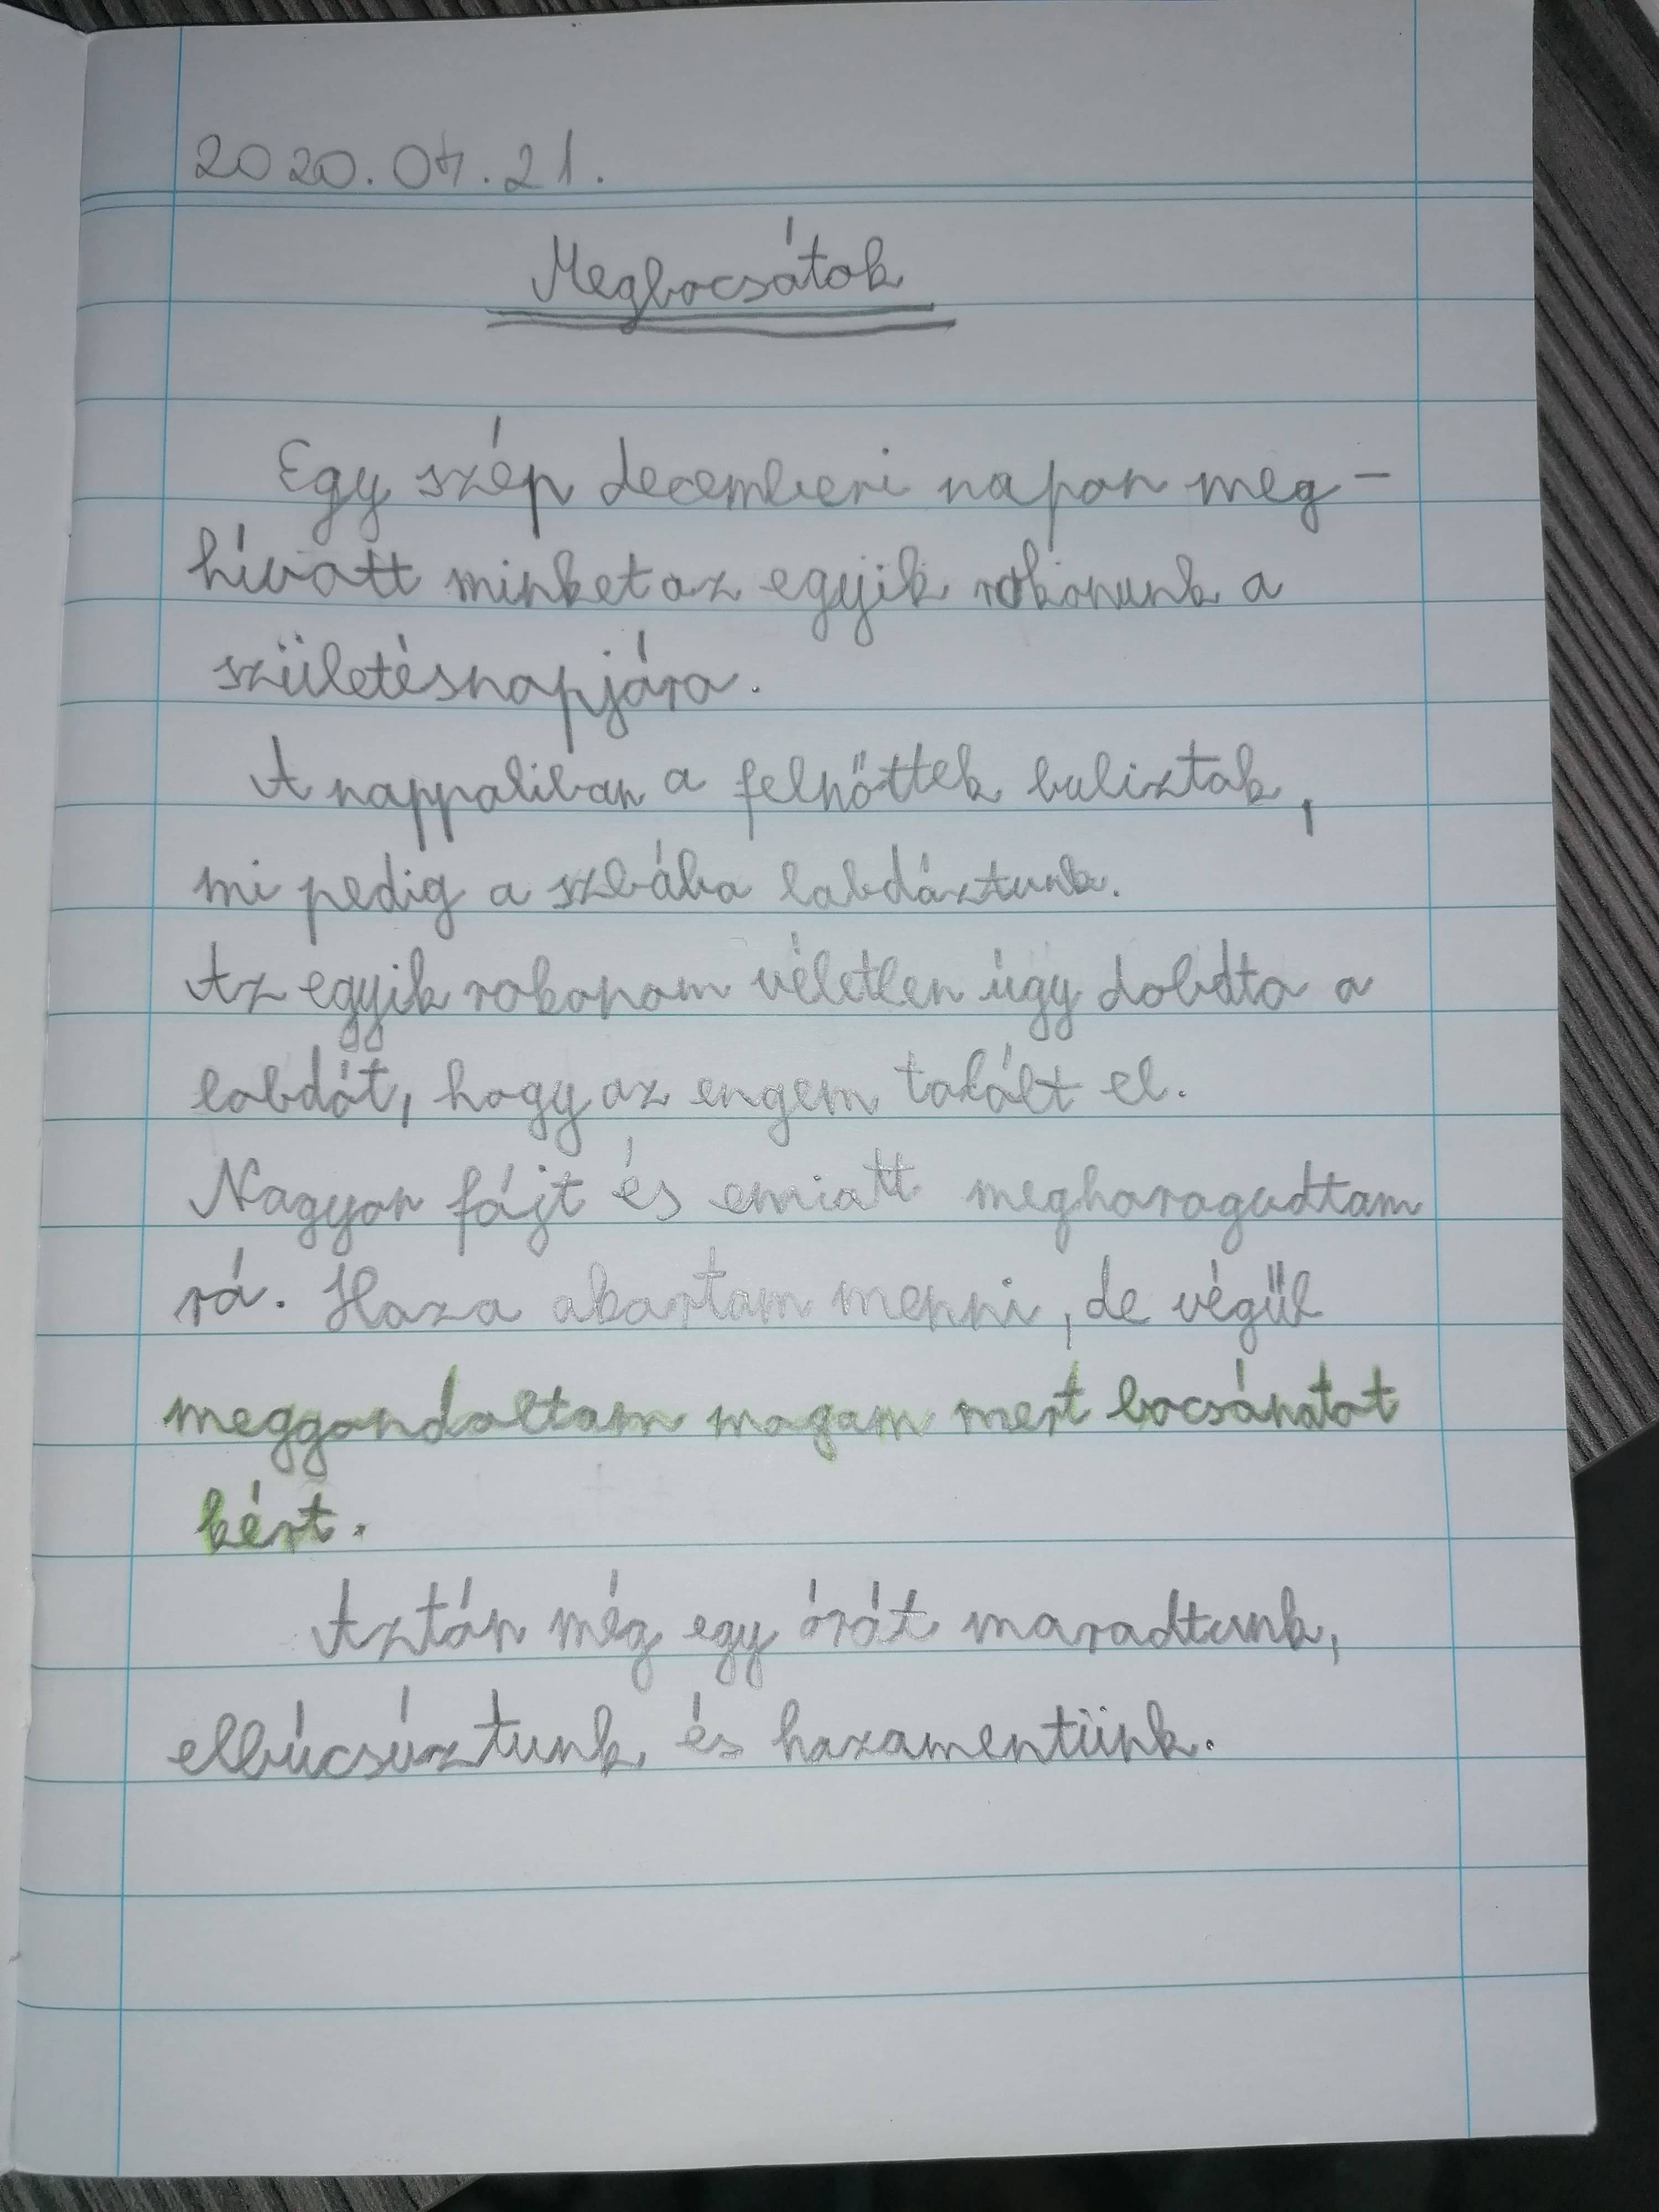 2020.04.21.
Megbocsátok
Egy szép decemberi napon meg-
hívott minket az egyik rokonunk a
születésnapjára.
A nappaliban a felnőttek buliztak,
mi pedig a szbába labdáztunk.
Az egyik rokonom véletlen úgy dobdta a
labdát, hogy az engem talált el.
Nagyon fájt és emiatt megharagudtam
rá. Haza akartam menni, de végül
meggondoltam magam mert bocsánatot
kért.
Aztán még egy órát maradtunk,
elbúcsúztunk és hazamentünk.